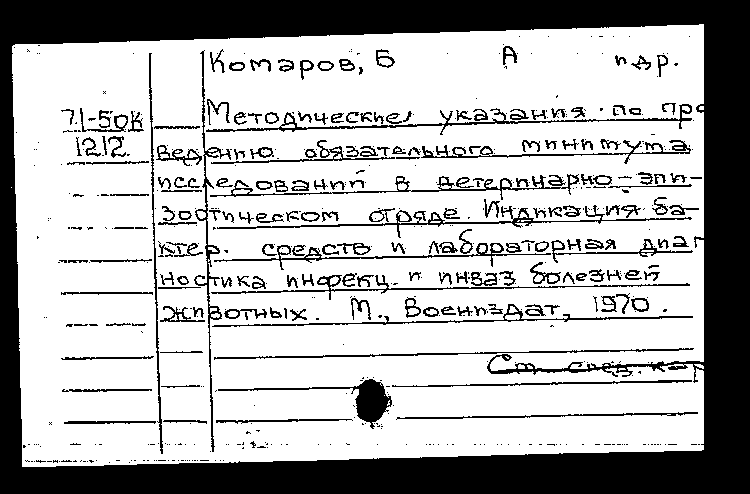 Комаров, Б А и др.
71-50к Методические указания по про
1212 ведению обязательного минимума
исследований в ветеринарно-эпи-
зоотическом отряде. Индикация ба-
ктер. средств и лабораторная диаг
ностика инфекц. и инваз болезней
животных. М., Воениздат, 1970.
См. спец. кар